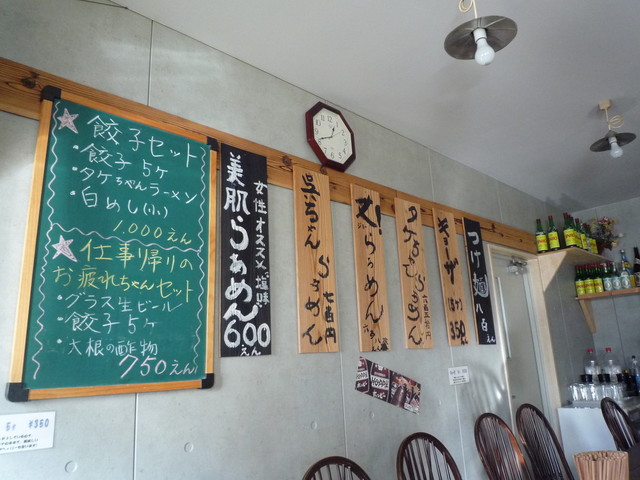 餃子セット
・餃子5ヶ
・タケちゃんラーメン
・白めし(小)
1,000えん
仕事り帰りの
お疲れちゃんセット
・グラス生ビール
・餃子5ケ
・大根の酢物
750えん
女性オススメ塩味
美肌らぁめん
600えん
呉ちゃん
らぁめん
七百円
らぁめん
タケちゃんらぁめん
ギョーザ
350えん
つけ麺
八百えん
¥360
HOPPY